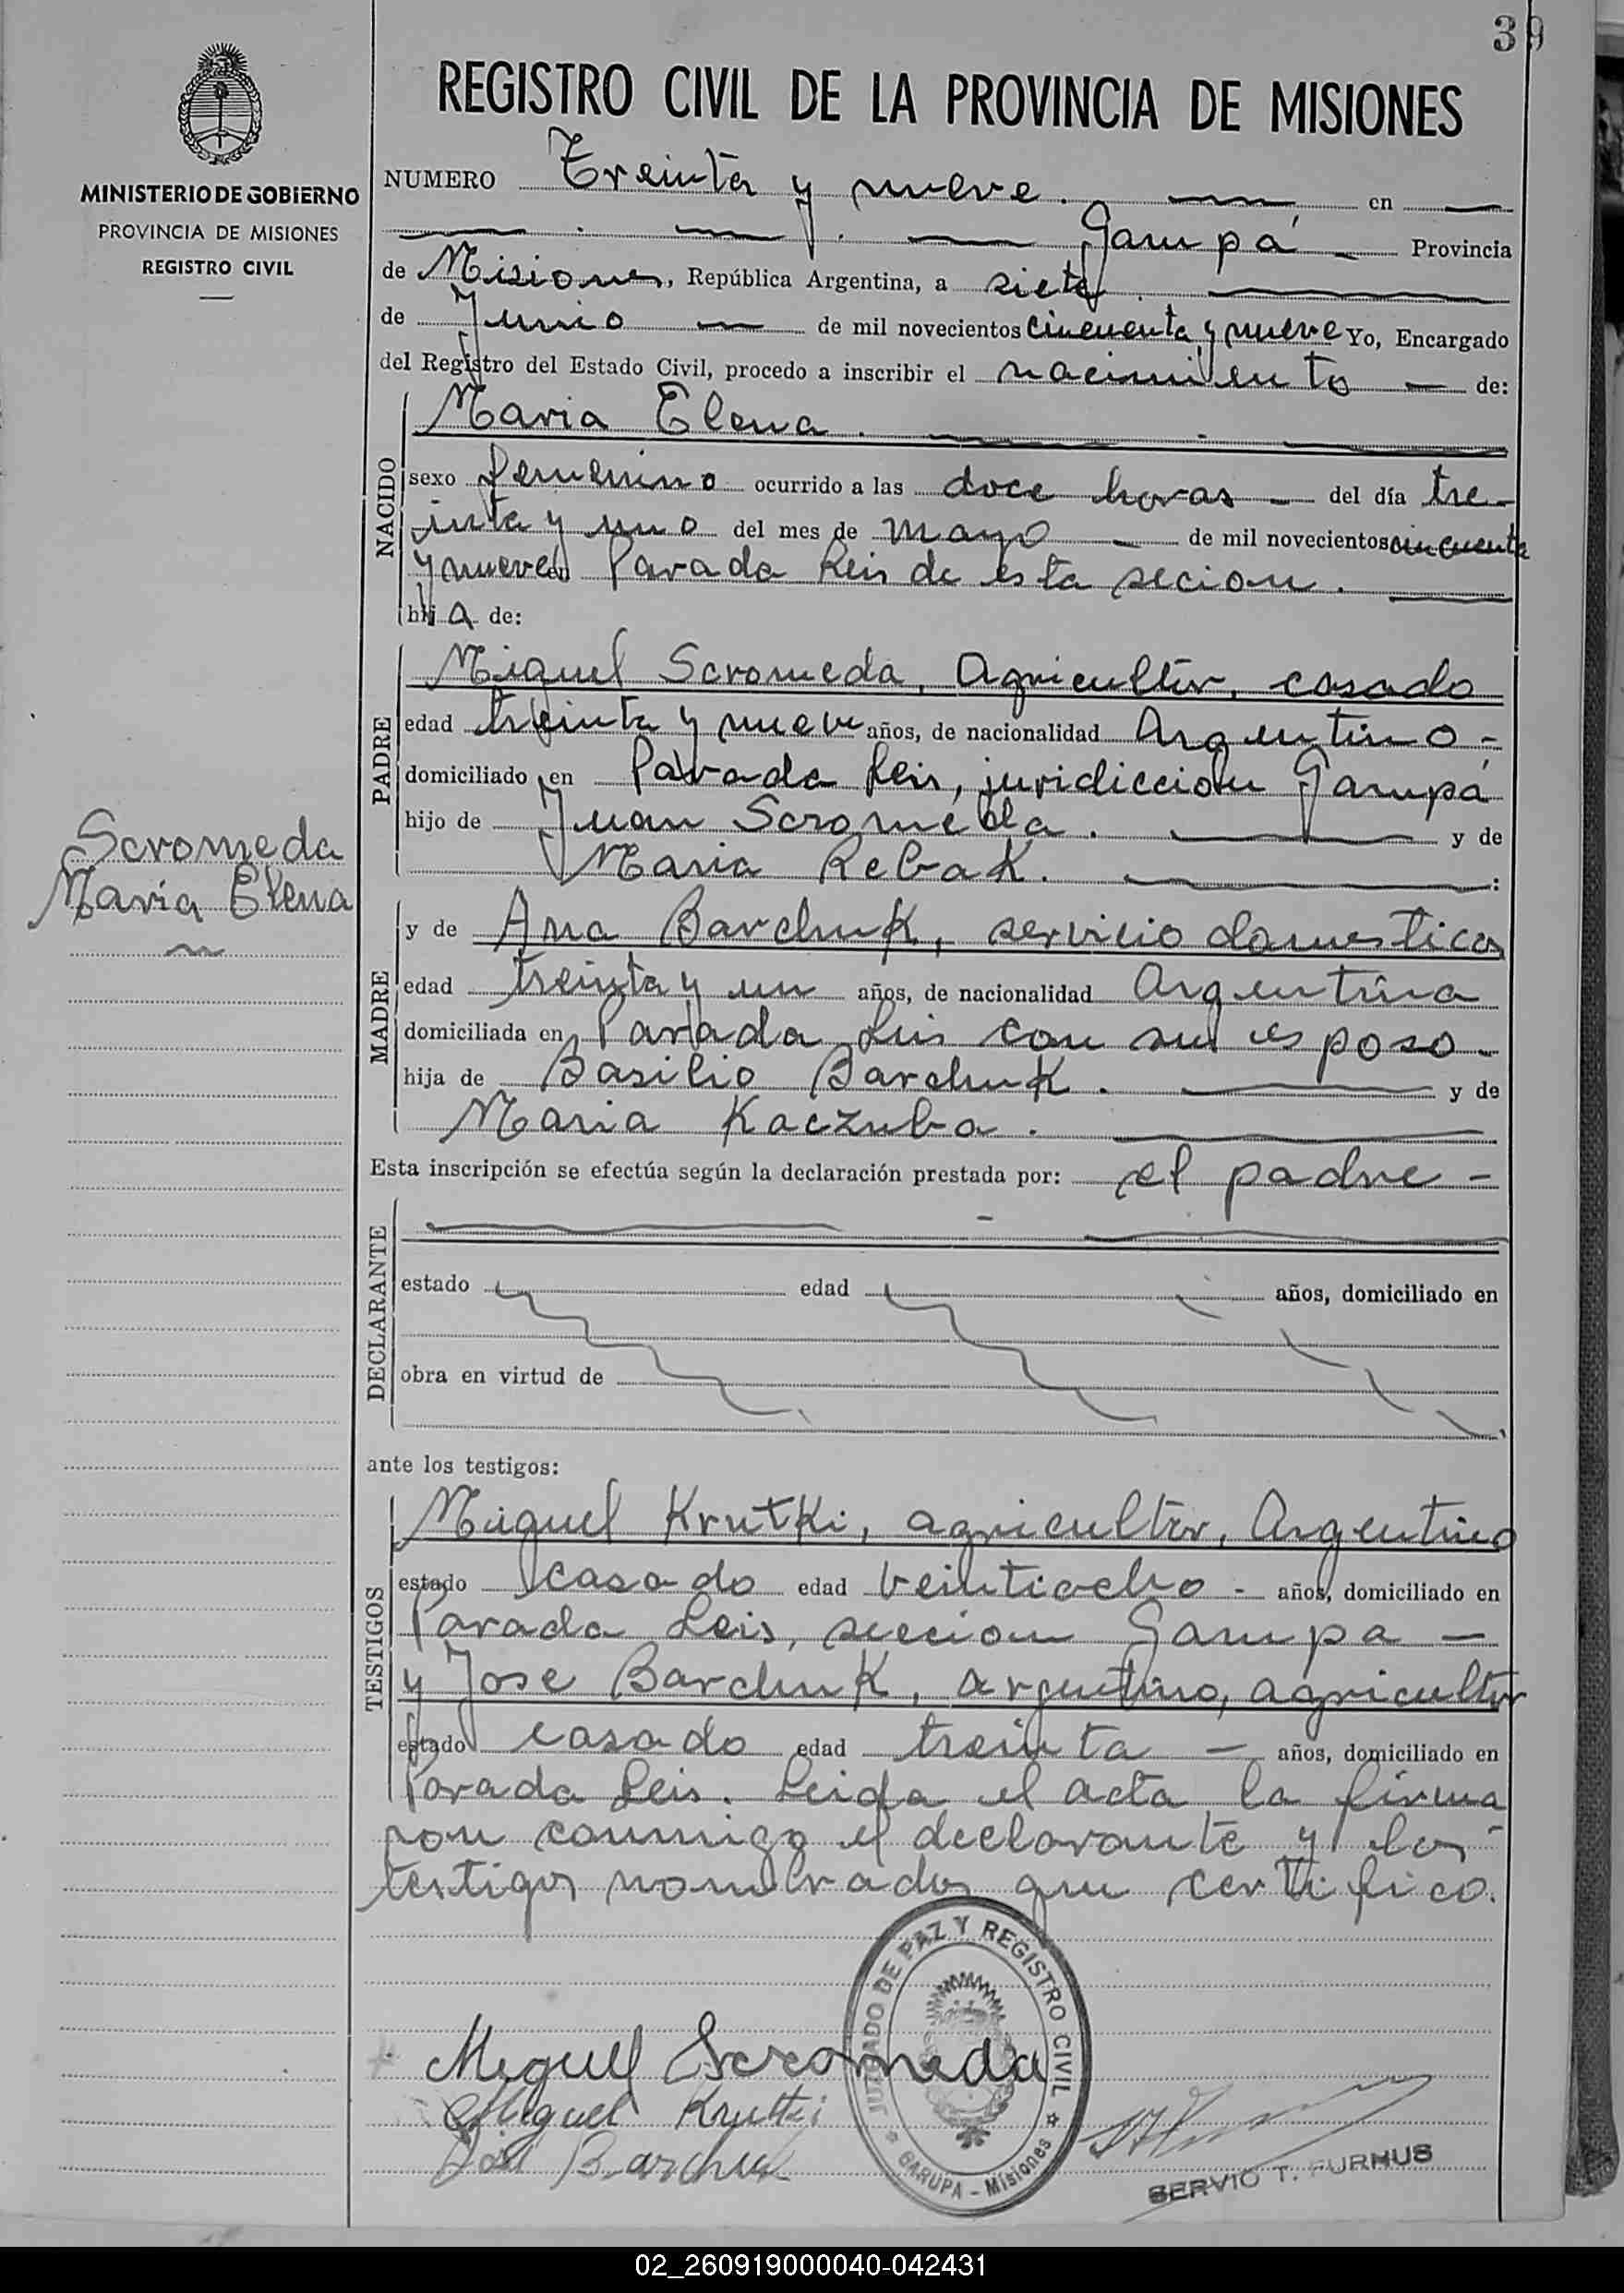 39
REGISTRO CIVIL DE LA PROVINCIA DE MISIONES
MINISTERIO DE GOBIERNO
PROVINCIA DE MISIONES
REGISTRO CIVIL
NUMERO Treinta y nueve. en
Garupá Provincia
de Misiones, República Argentina, a siete
de Junio de mil novecientos cincuenta y nueve Yo, Encargado
del Registro del Estado Civil, procedo a inscribir el nacimiento de:
NACIDO
Maria Elena.
sexo femenino ocurrido a las doce horas del día tre-
inta y uno del mes de mayo de mil novecientos cincuenta
y nueve en Parada Leis de esta secion.
hij a de:
PADRE
Miguel Scromeda, Agricultor, casado
edad treinta y nueve años, de nacionalidad Argentino -
domiciliado en Parada Leis, juridiccion Garupá
hijo de Juan Scromeda. y de
Maria Rebak. :
Scromeda
Maria Elena
MADRE
y de Ana Barchuk, servicio domesticos
edad treinta y un años, de nacionalidad Argentina
domiciliada en Parada Leis con su esposo -
hija de Basilio Barchuk. y de
Maria Kaczuba.
Esta inscripción se efectúa según la declaración prestada por: el padre -
DECLARANTE
estado edad años, domiciliado en
obra en virtud de
ante los testigos:
TESTIGOS
Miguel Krutki, agricultor, Argentino
estado casado edad veintiocho - años, domiciliado en
Parada Leis, seccion Garupa -
y Jose Barchuk, argentino, agricultor
estado casado edad treinta - años, domiciliado en
Parada Leis. Leida el acta la firma
ron conmigo el declarante y los
testigos nombrados que certifico.
JUZGADO DE PAZ Y REGISTRO CIVIL
GARUPA - Misiones
Miguel Scromeda
Miguel Krutki
José Barchuk
SERVIO T. FURHUS
02_260919000040-042431